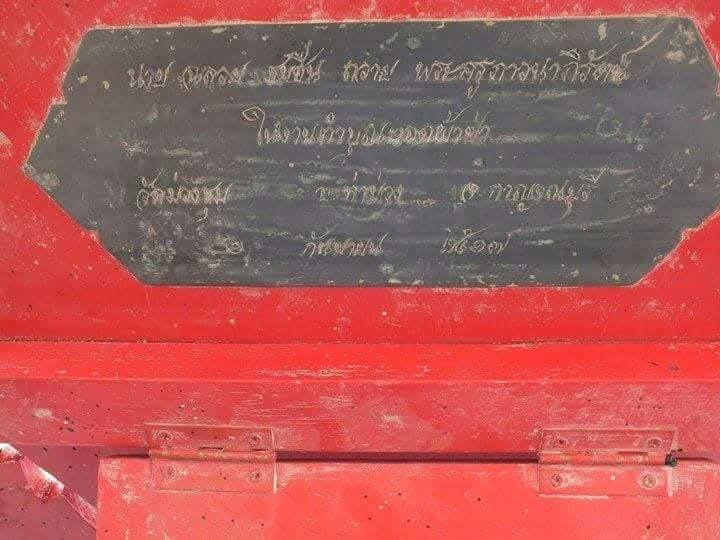 นาย ฉลวย ชมชื่น ถวาย พระครูภาวนาภิรัตน์
ในงานทำบุญทอดผ้าป่า
วัดม่วงชุม อ ท่าม่วง จ กาญจนบุรี
๒ กันยายน ๒๕๑๗